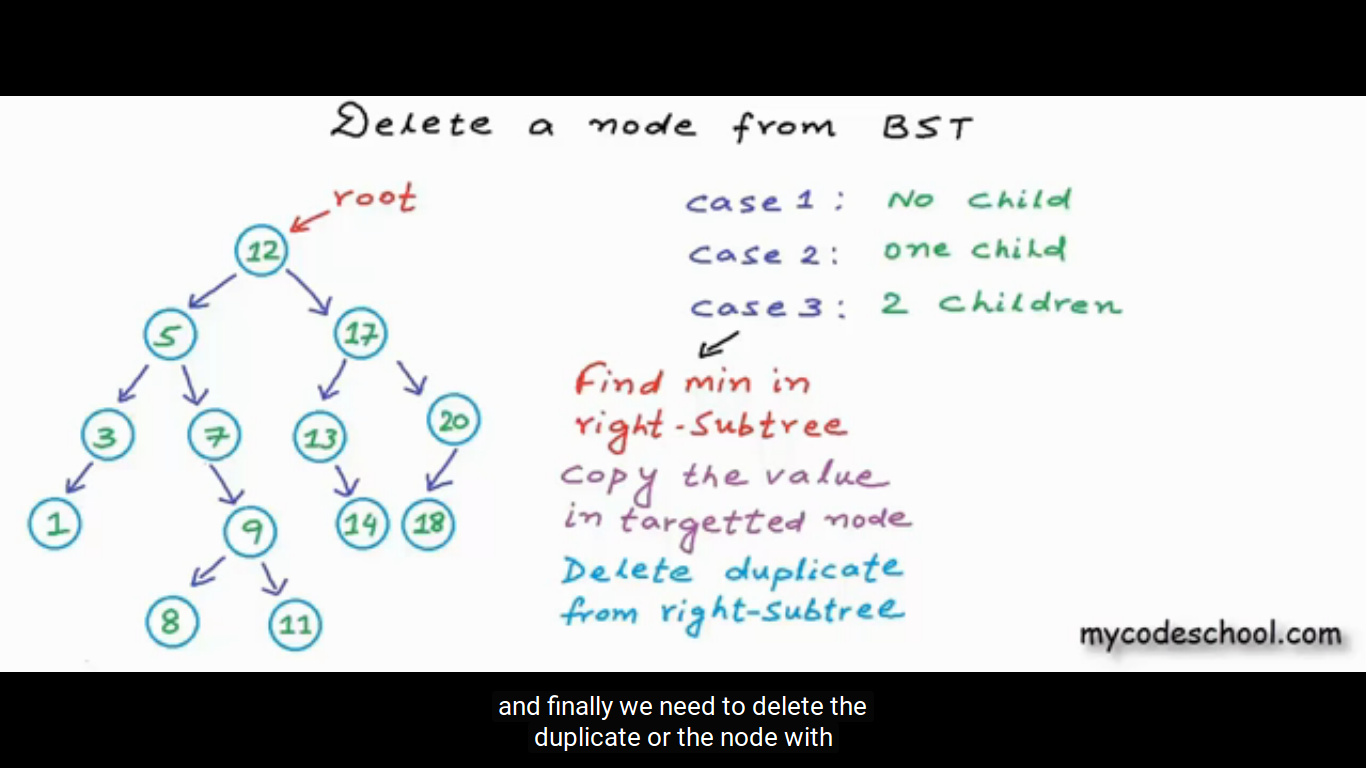 Delete a node from BST
root
case 1: No child
case 2: one child
case 3: 2 children
Find min in
right-Subtree
copy the value
in targetted node
Delete duplicate
from right-subtree
12
5
17
3
7
13
20
1
9
14
18
8
11
mycodeschool.com
and finally we need to delete the
duplicate or the node with